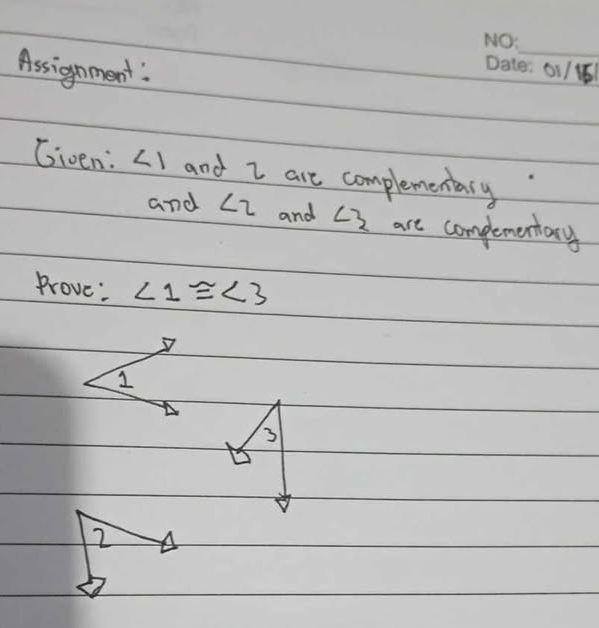 NO:
Date: 01/15/
Assignment:
Given: <1 and 2 are complementary
and <2 and <3 are complementary
Prove: <1 ≅ <3
1
3
2